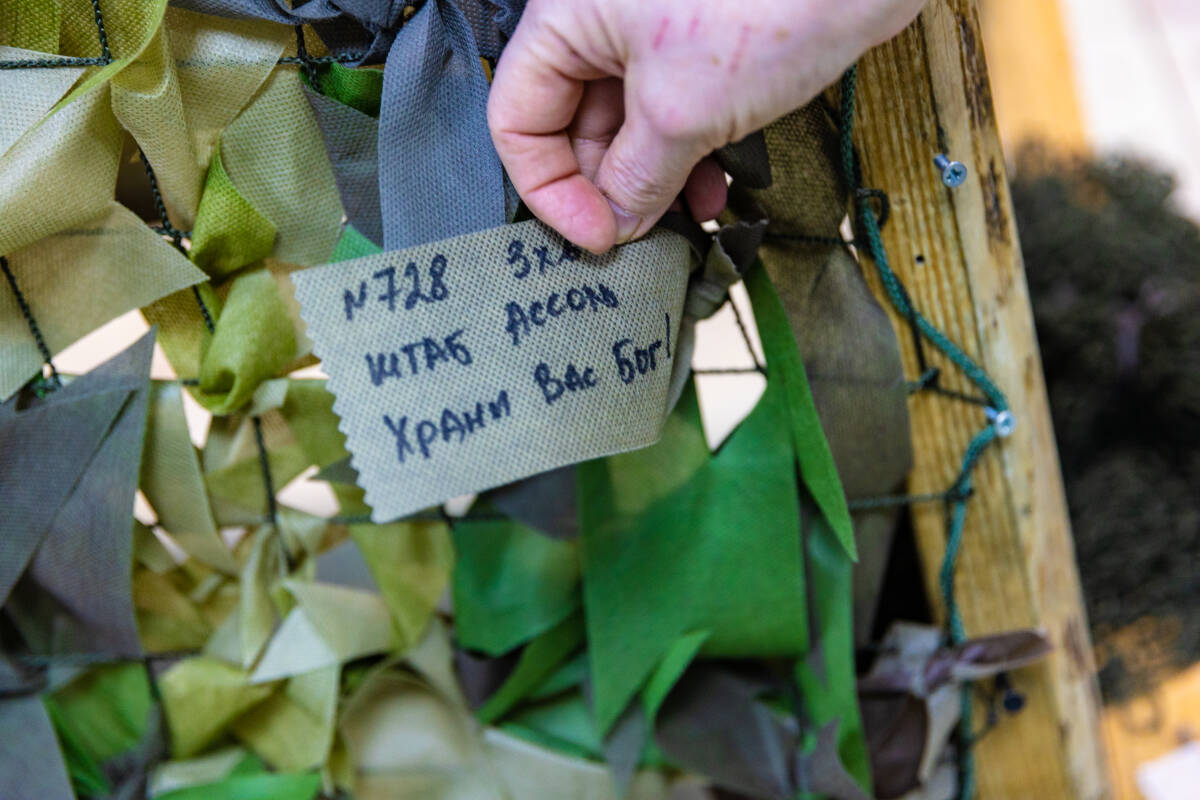 №728 3х
ШТАБ АССОЛЬ
ХРАНИ ВАС БОГ!